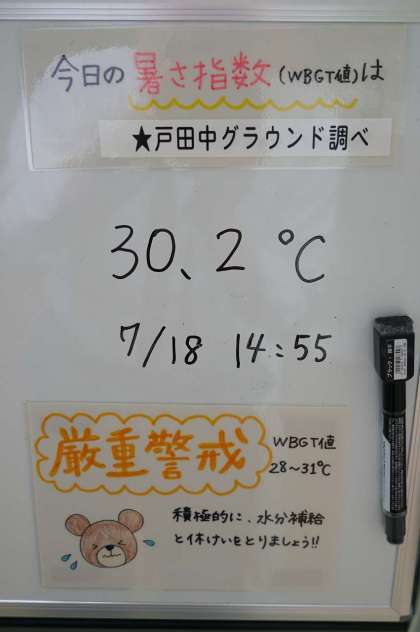 今日の暑さ指数(WBGT値)は
★戸田中グラウンド調べ
30.2℃
7/18 14:55
厳重警戒
WBGT値
28~31℃
積極的に、水分補給
と休けいをとりましょう!!